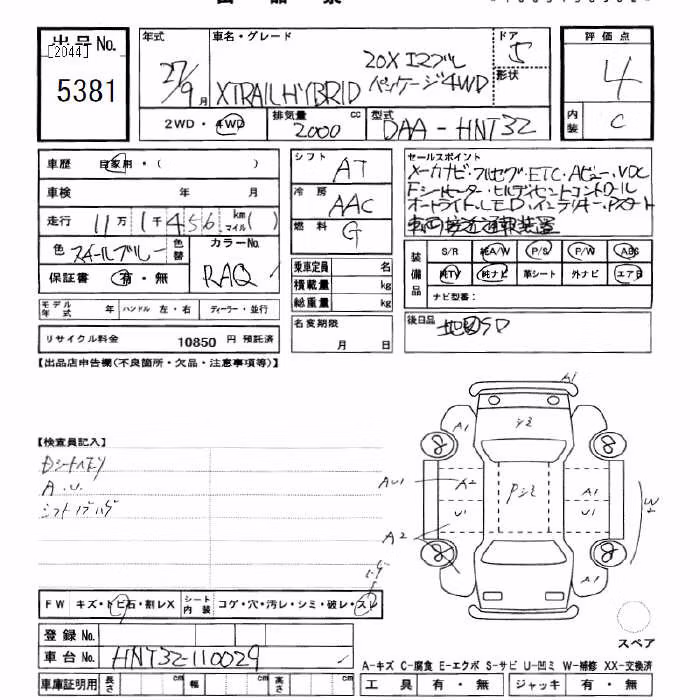 出品票
出品 No.
[2044]
5381
年式
27/9月
車名・グレード
XTRAIL HYBRID
20X エマブレ
パッケージ 4WD
ドア
5
形状
評価点
4
内装
C
2WD・4WD
排気量 2000 cc
型式
DAA-HNT32
車歴 自家用・( )
車検 年 月
走行 11万1千456 km マイル( )
色
スチールブルー
色替
カラーNo.
RAQ
保証書 有・無
モデル年式 年 ハンドル 左・右 ディーラー・並行
リサイクル料金 10850 円 預託済
シフト AT
冷房 AAC
燃料 G
乗車定員 名
積載量 kg
総重量 kg
名変期限
月 日
セールスポイント
メーカナビ・フルセグ・ETC・Aビュー・VDC
Fシートヒーター・ヒルディセントコントロール
オートライト・LED・インテリキー・Pスタート
車両接近通報装置
装備品
S/R 純A/W P/S P/W ABS
純TV 純ナビ 革シート 外ナビ エアB
ナビ型番:
後日品
地図SD
【出品店申告欄(不良箇所・欠品・注意事項等)】
【検査員記入】
Dシートヘタリ
A.U.
シフトノブハゲ
A1
A1
シミ
8
8
AU1
A2
Pシミ
A1
U1
U1
W2
A2
8
8
A1
スレ
FW キズ・トビ石・割レX シート内装 コゲ・穴・汚レ・シミ・破レ・スレ
登録 No.
車台 No. HNT32-110029
車庫証明用 長さ cm 幅 cm 高さ cm
スペア
A-キズ C-腐食 E-エクボ S-サビ U-凹ミ W-補修 XX-交換済
工具 有・無 ジャッキ 有・無